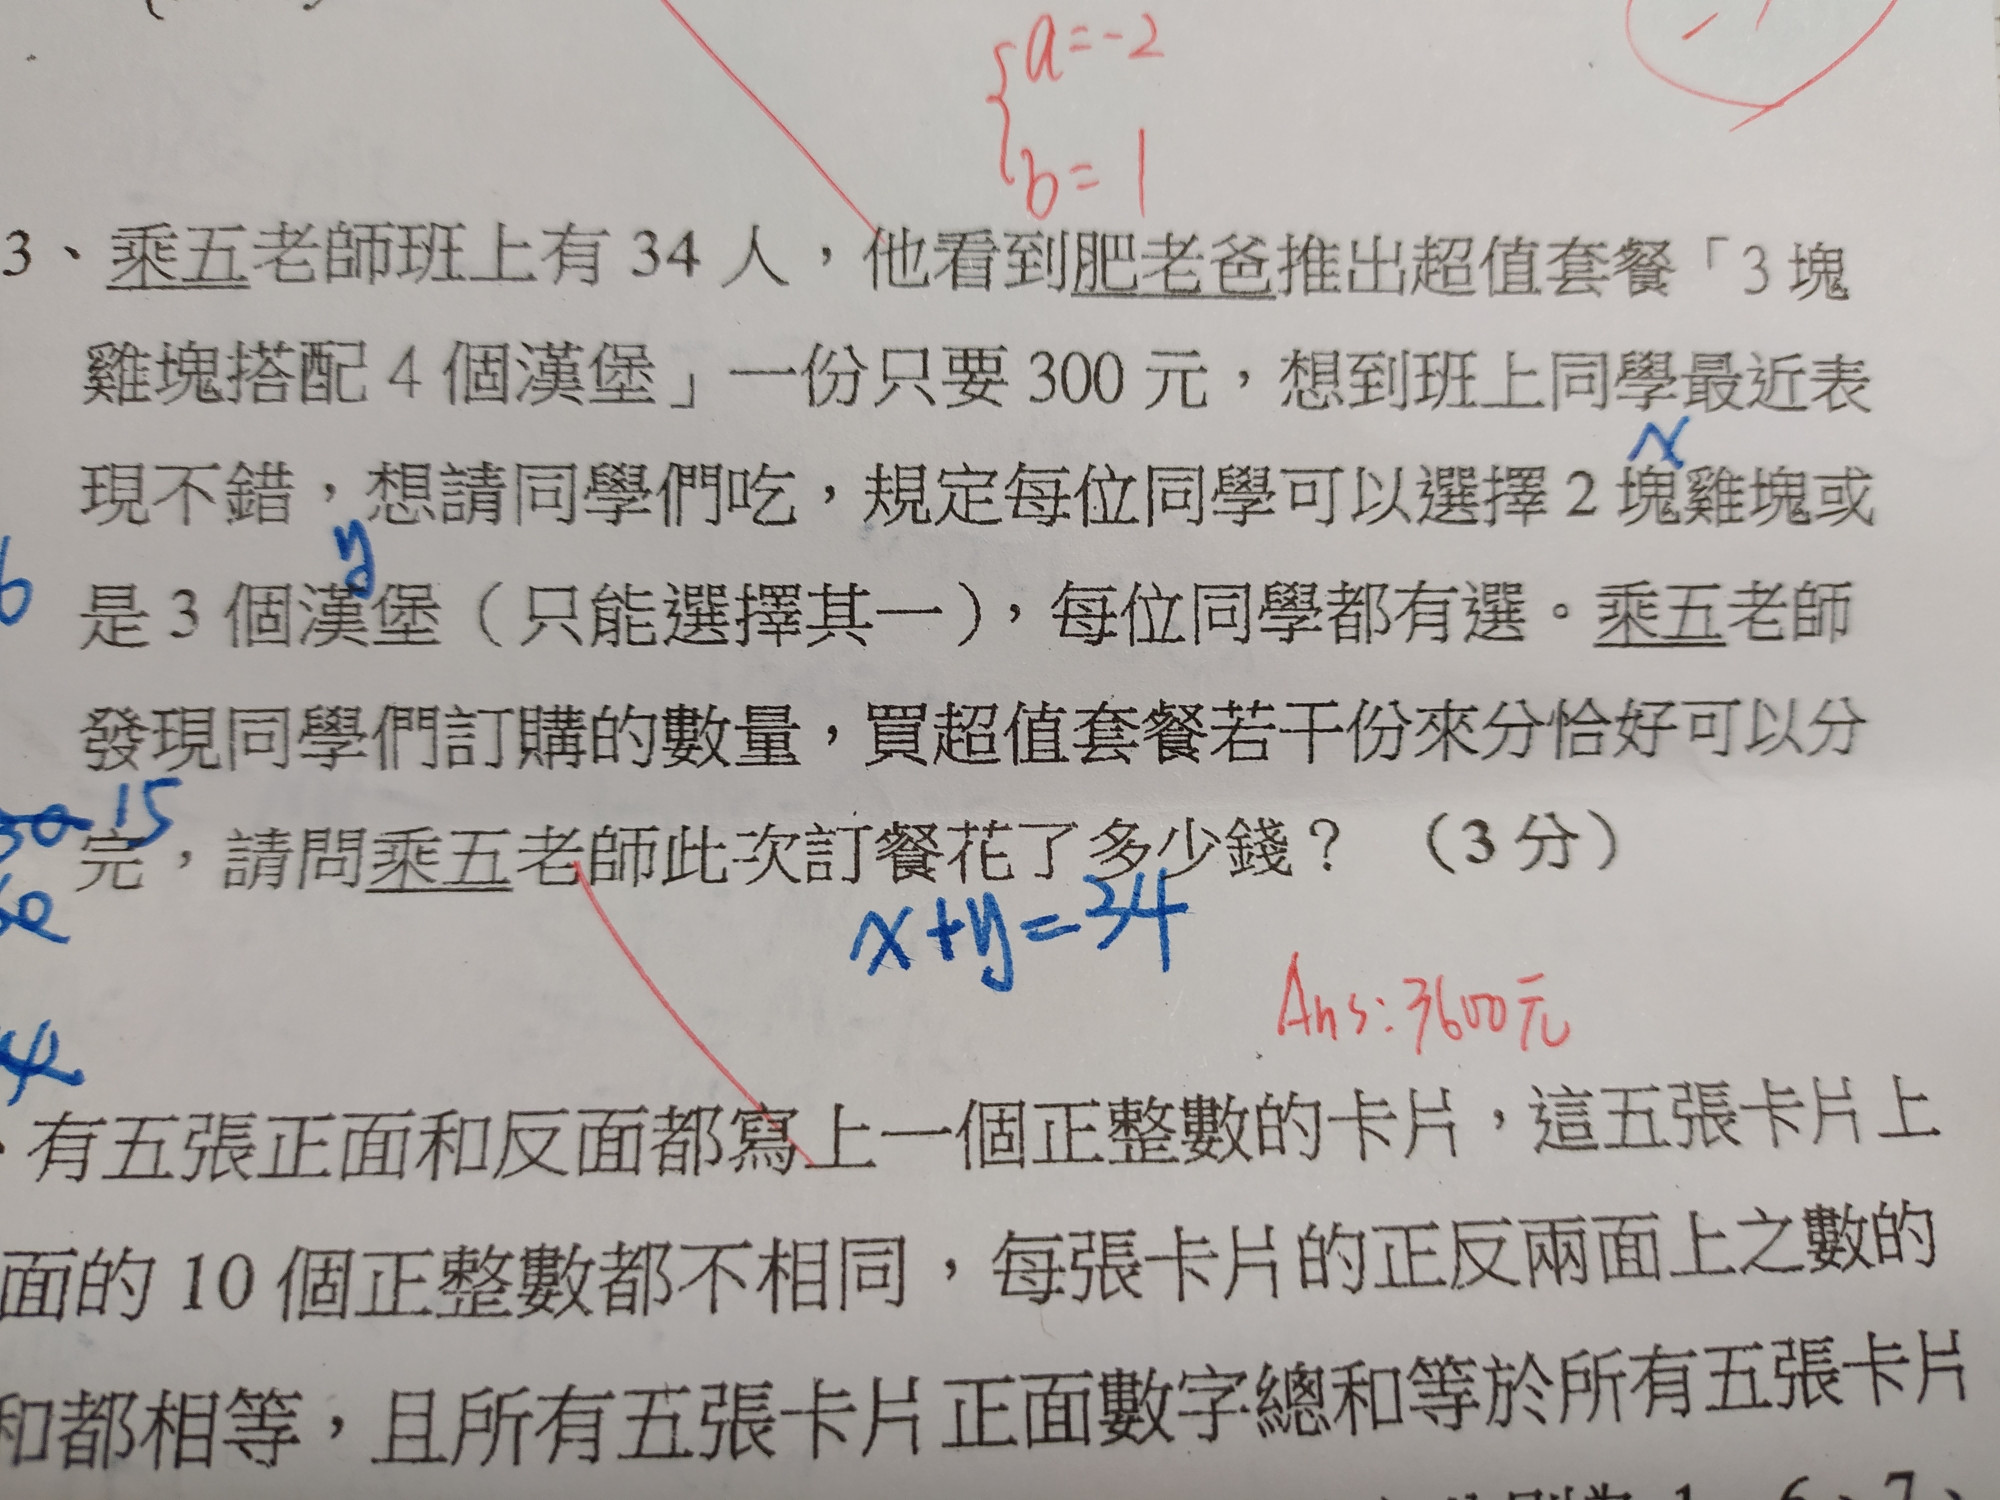 a=-2
b=1
3、乘五老師班上有 34 人，他看到肥老爸推出超值套餐「3 塊
雞塊搭配 4 個漢堡」一份只要 300 元，想到班上同學最近表
x
現不錯，想請同學們吃，規定每位同學可以選擇 2 塊雞塊或
y
6
是 3 個漢堡（只能選擇其一），每位同學都有選。乘五老師
發現同學們訂購的數量，買超值套餐若干份來分恰好可以分
15
完，請問乘五老師此次訂餐花了多少錢？（3 分）
x+y=34
Ans:3600元
4
有五張正面和反面都寫上一個正整數的卡片，這五張卡片上
面的 10 個正整數都不相同，每張卡片的正反兩面上之數的
和都相等，且所有五張卡片正面數字總和等於所有五張卡片
1、6、7、